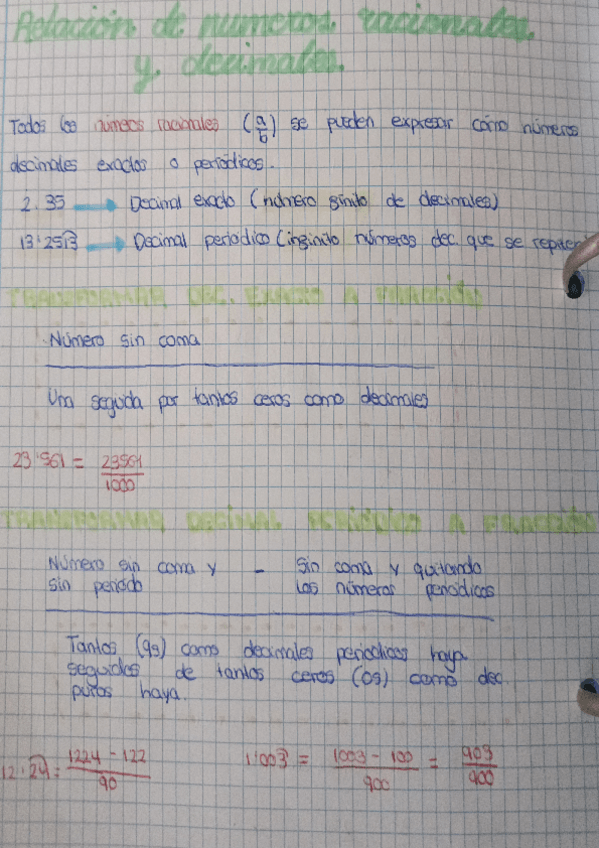 Relación de números racionales
y decimales.
Todos los números racionales (a/b) se pueden expresar como números
decimales exactos o periódicos.
2.35 → Decimal exacto (número finito de decimales)
13'2513 → Decimal periódico (infinito números dec. que se repiten
TRANSFORMAR DEC. EXACTO A FRACCIÓN
Número sin coma
Una seguida por tantos ceros como decimales
23'561 = 23561/1000
TRANSFORMAR DECIMAL PERIÓDICO A FRACCIÓN
Número sin coma y - Sin coma y quitando
sin periodo los números periódicos
Tantos (9s) como decimales periodicos haya
seguidos de tantos ceros (0s) como dec.
puros haya.
12.24 = 1224 - 122/90 1'003 = 1003 - 100/900 = 903/900